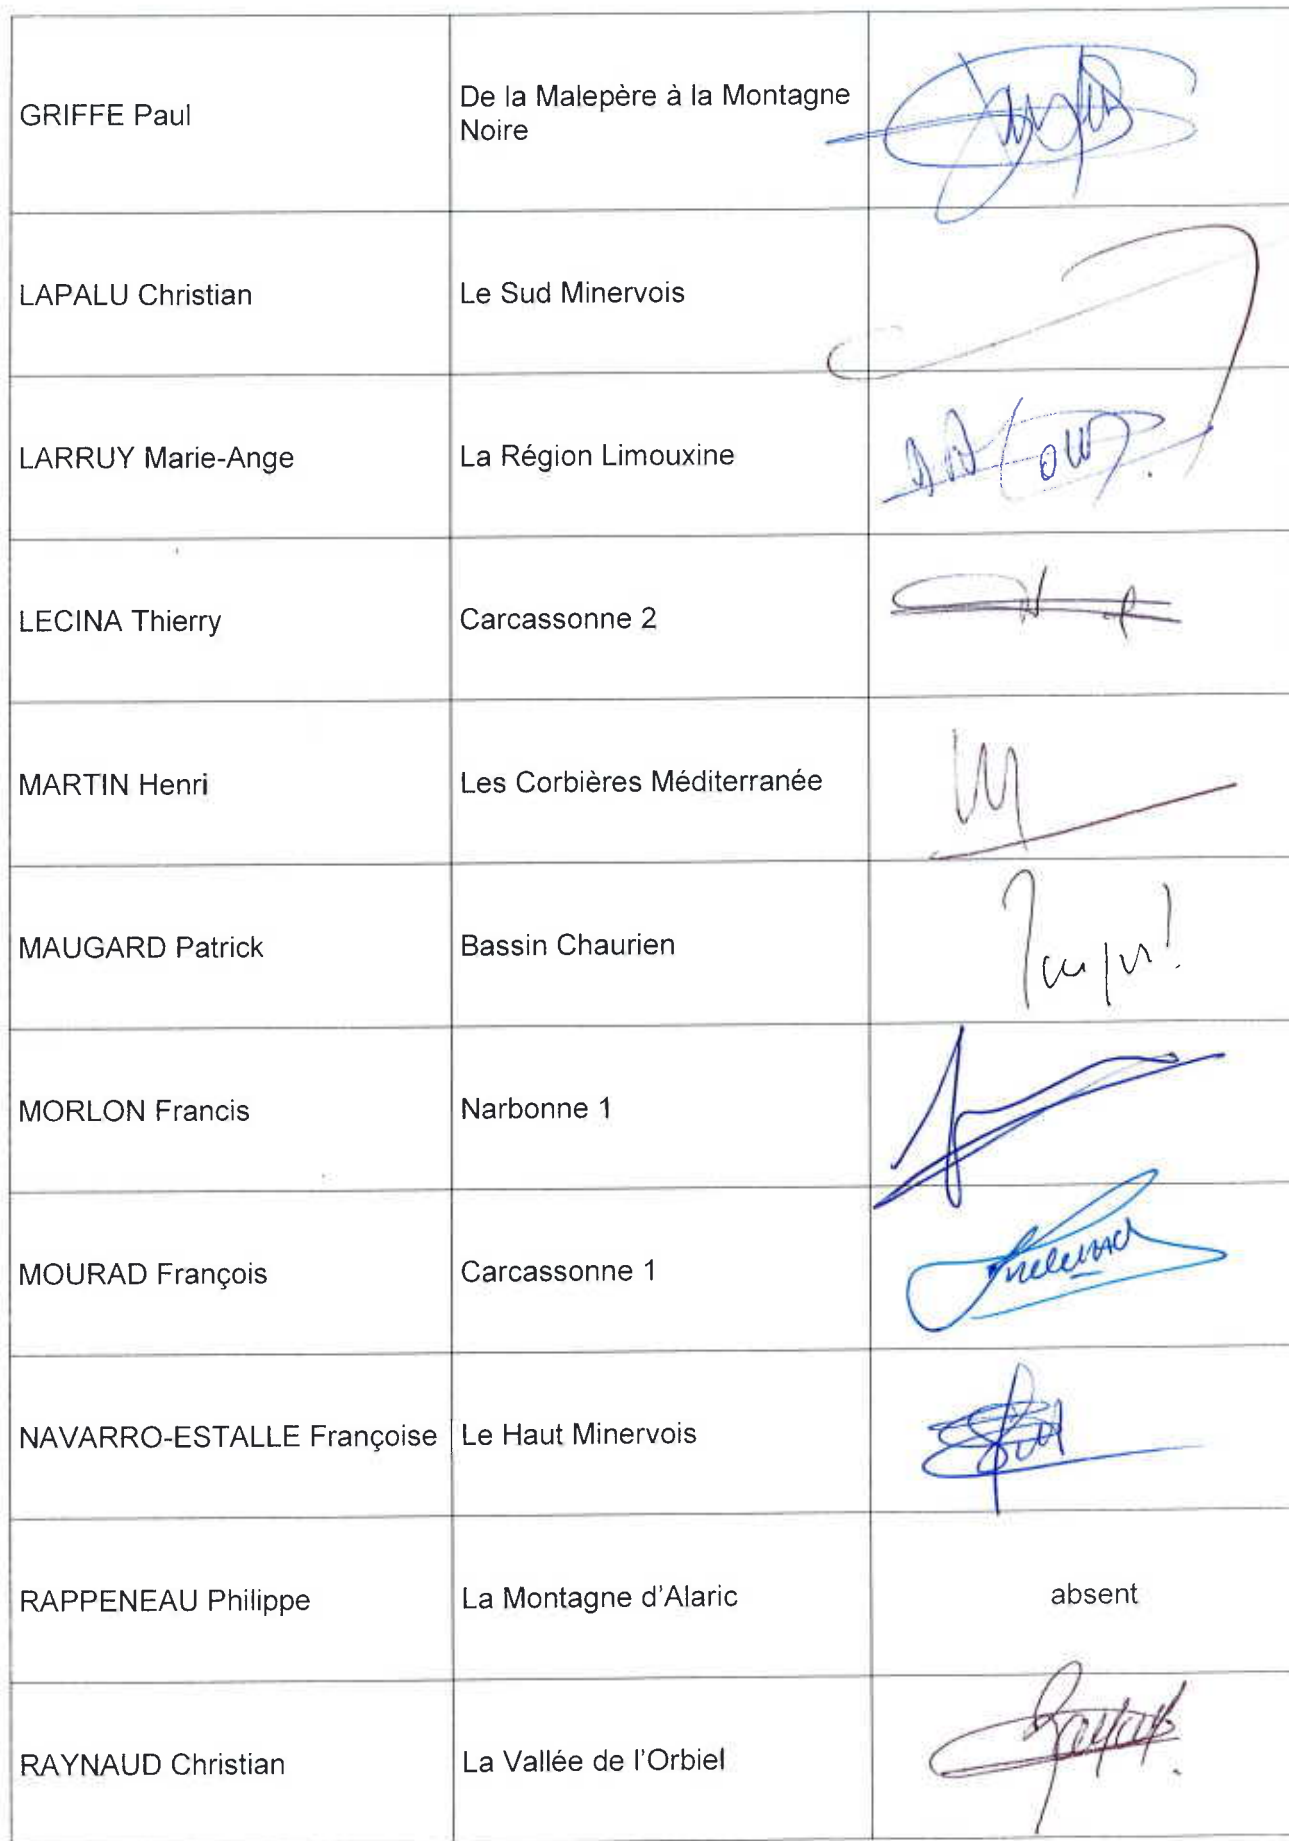 GRIFFE Paul
De la Malepère à la Montagne
Noire
LAPALU Christian
Le Sud Minervois
LARRUY Marie-Ange
La Région Limouxine
LECINA Thierry
Carcassonne 2
MARTIN Henri
Les Corbières Méditerranée
MAUGARD Patrick
Bassin Chaurien
MORLON Francis
Narbonne 1
MOURAD François
Carcassonne 1
NAVARRO-ESTALLE Françoise
Le Haut Minervois
RAPPENEAU Philippe
La Montagne d'Alaric
absent
RAYNAUD Christian
La Vallée de l'Orbiel